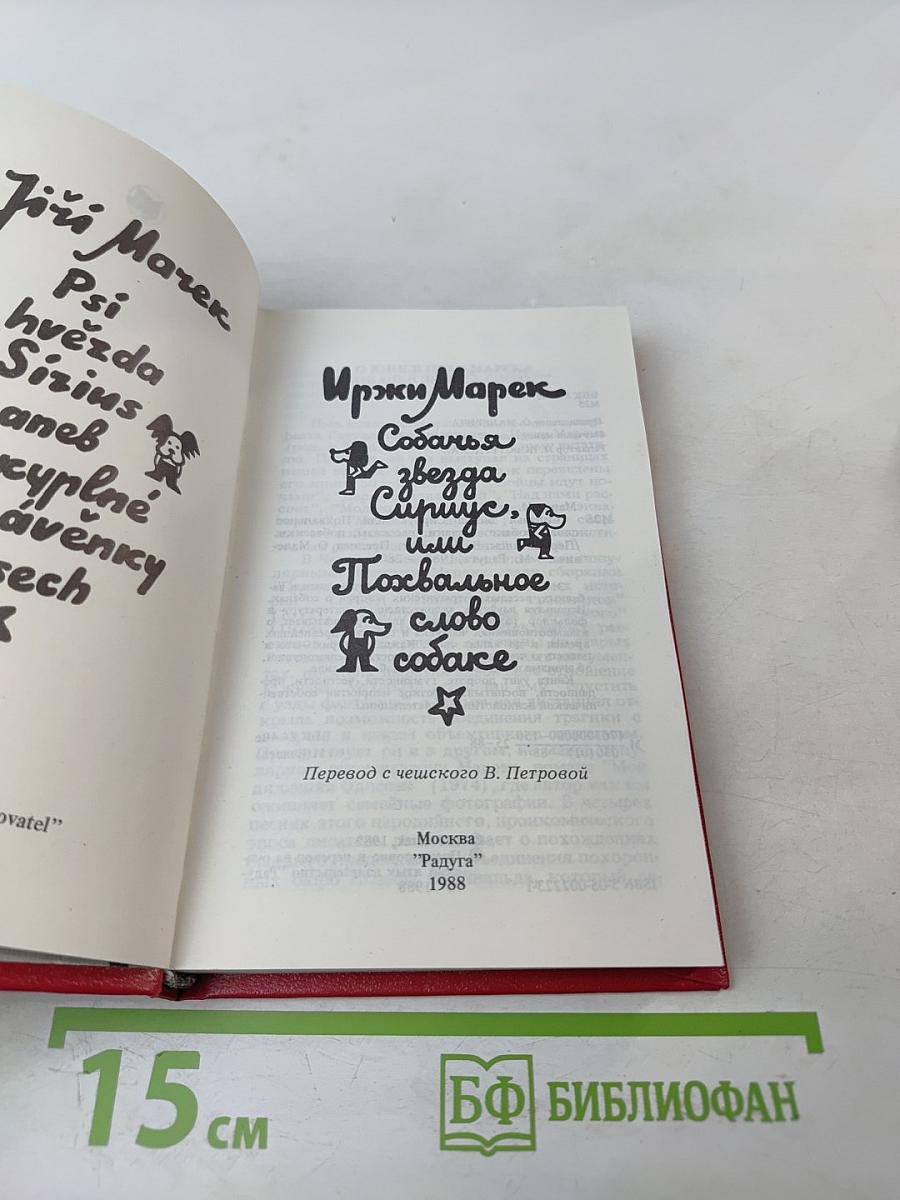 Jiří Marek
Psí
hvězda
Sírius
aneb
kyplné
ávěnky
sech
ovatel”
Иржи Марек
Собачья
звезда
Сириус,
или
Похвальное
слово
собаке
Перевод с чешского В. Петровой
Москва
”Радуга”
1988
15 см
БФ БИБЛИОФАН